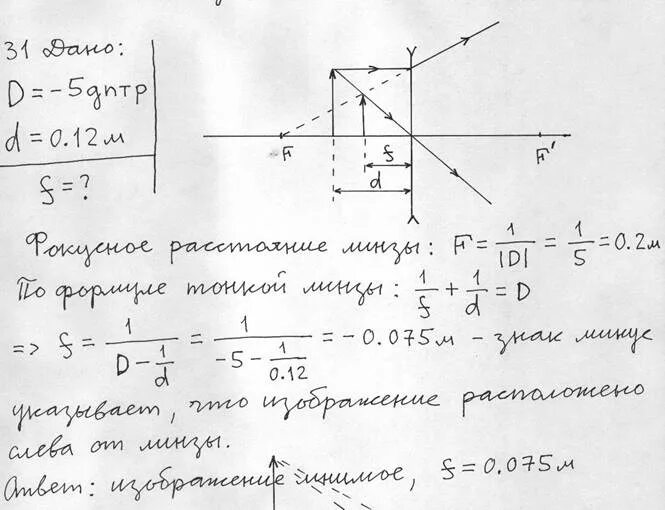 31 Дано:
D = -5 дптр
d = 0.12 м
f = ?
F
F'
f
d
Фокусное расстояние линзы: F = 1/|D| = 1/5 = 0.2 м
По формуле тонкой линзы: 1/f + 1/d = D
=> f = 1/(D - 1/d) = 1/(-5 - 1/0.12) = -0.075 м - знак минус
указывает, что изображение расположено
слева от линзы.
Ответ: изображение мнимое, f = 0.075 м